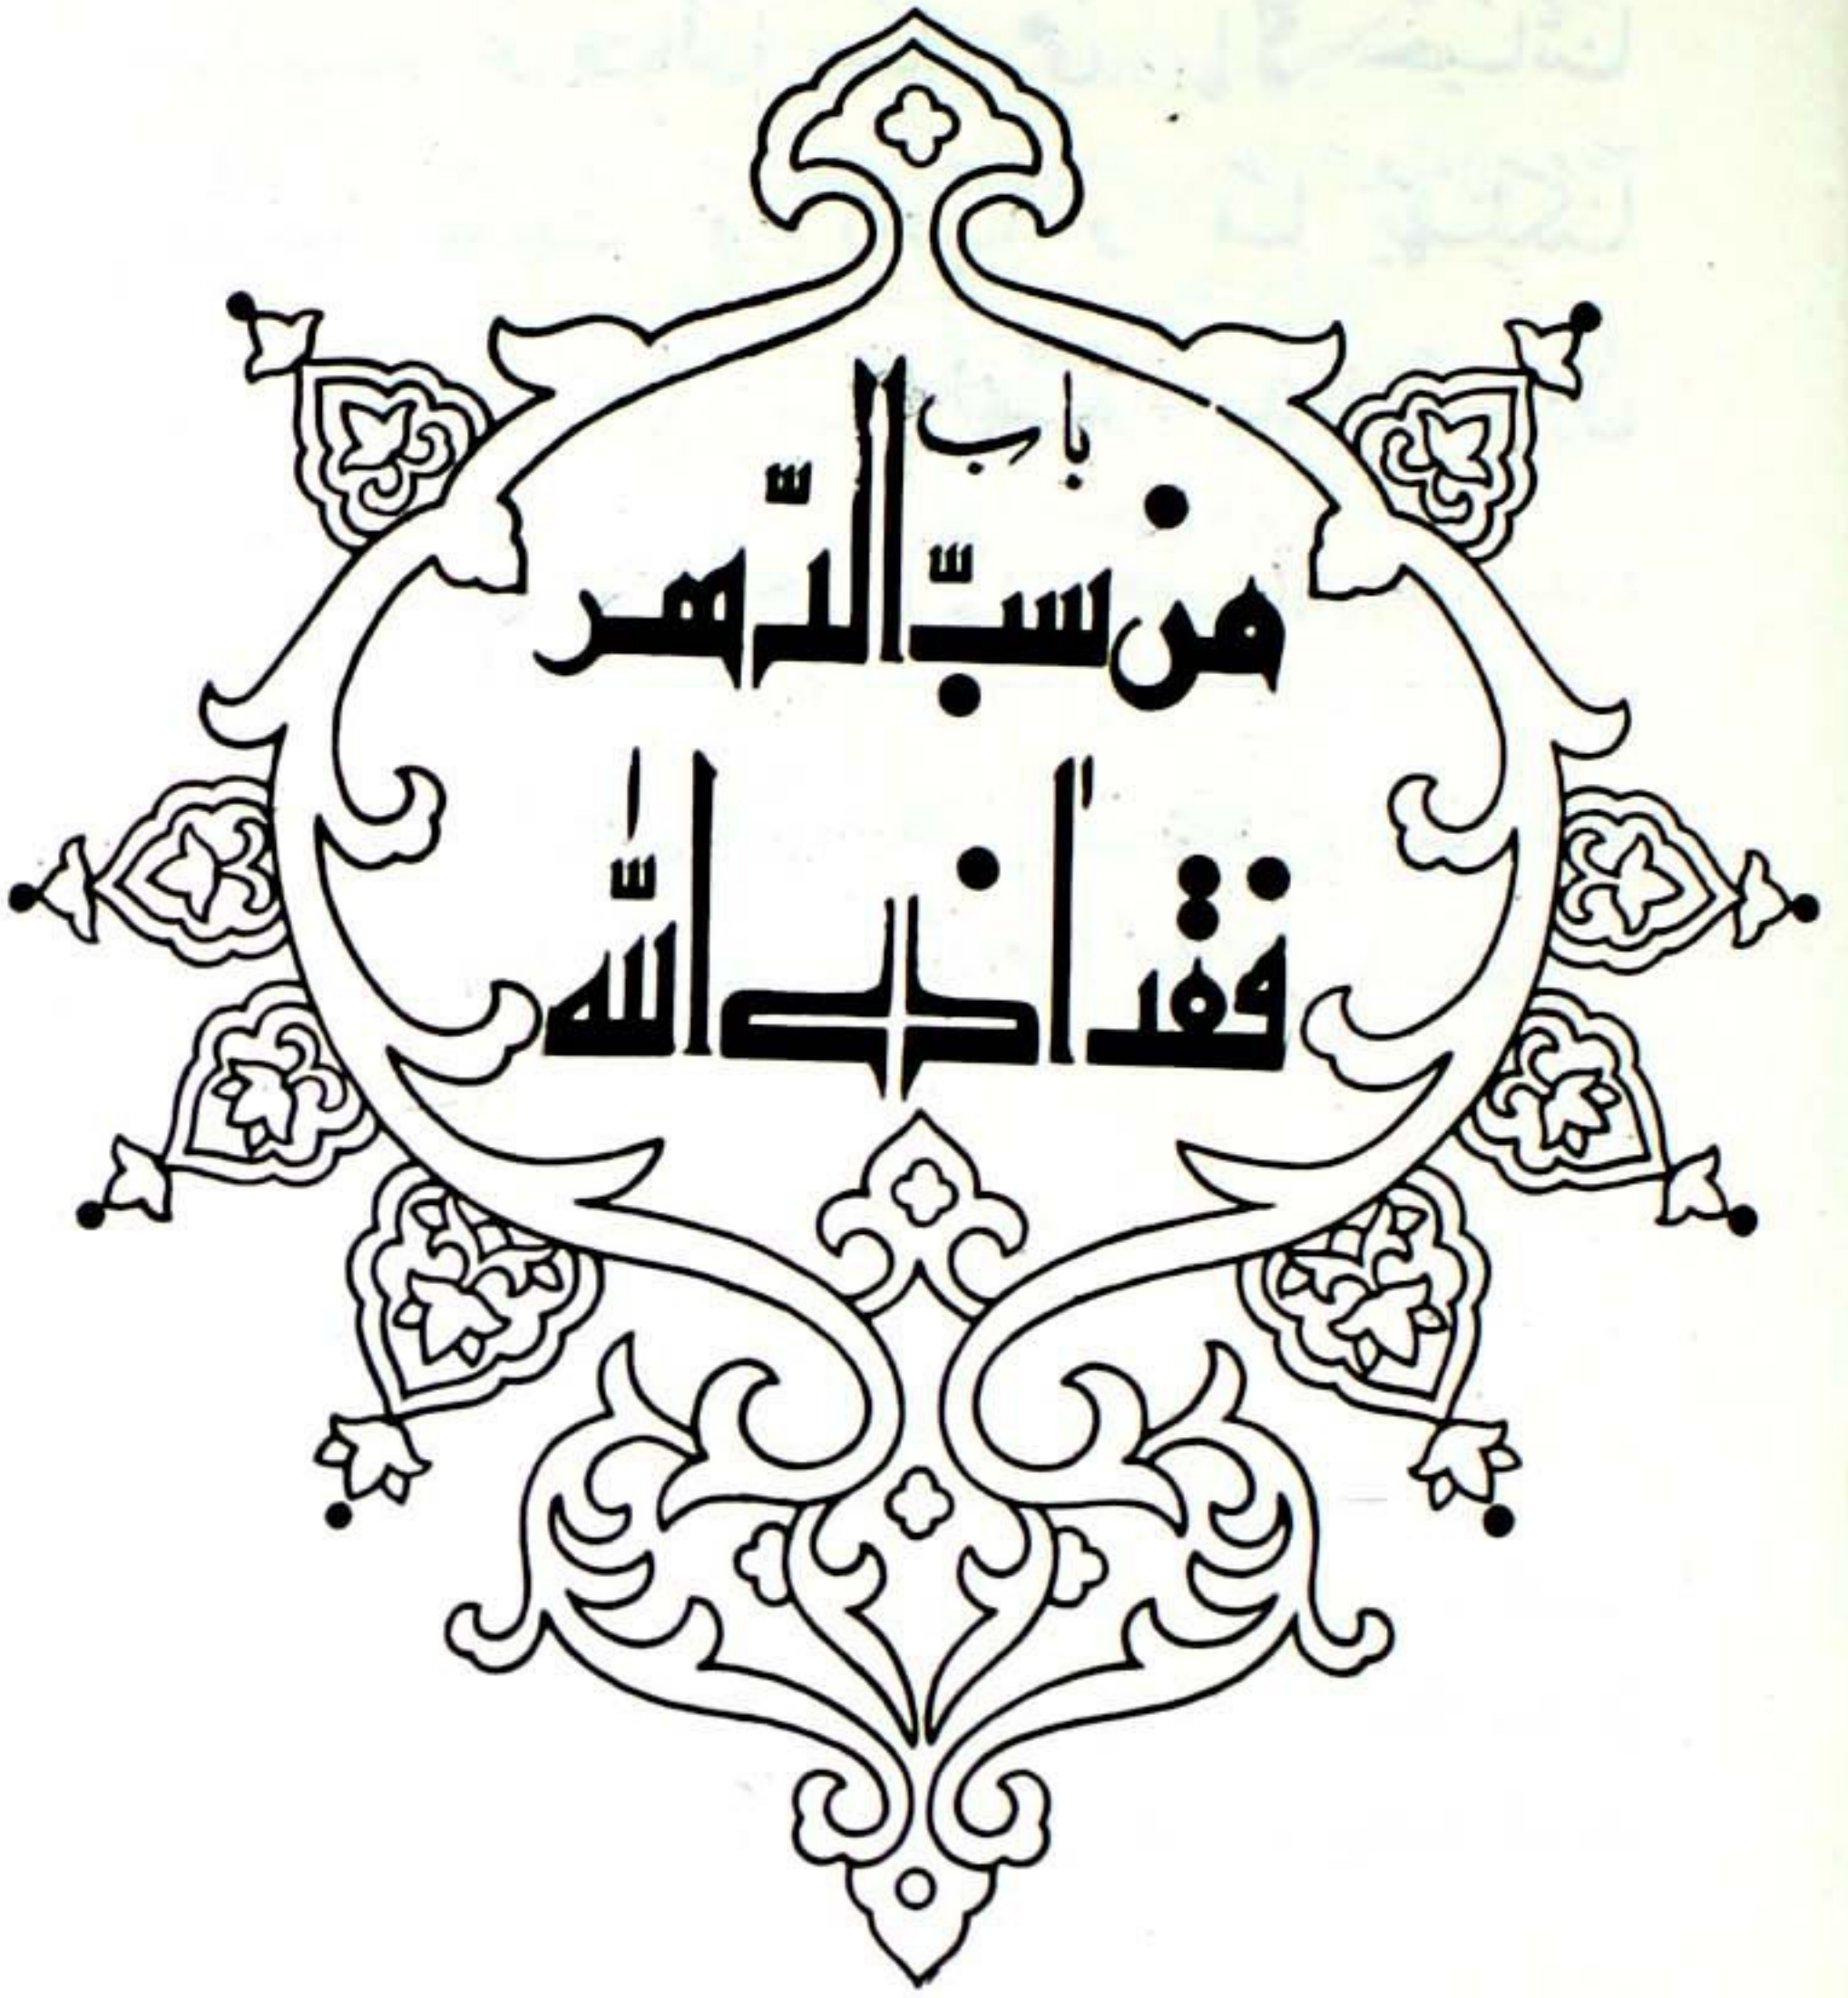 باب
من سبّ الدّهر
فقد اٰذى اللّٰه